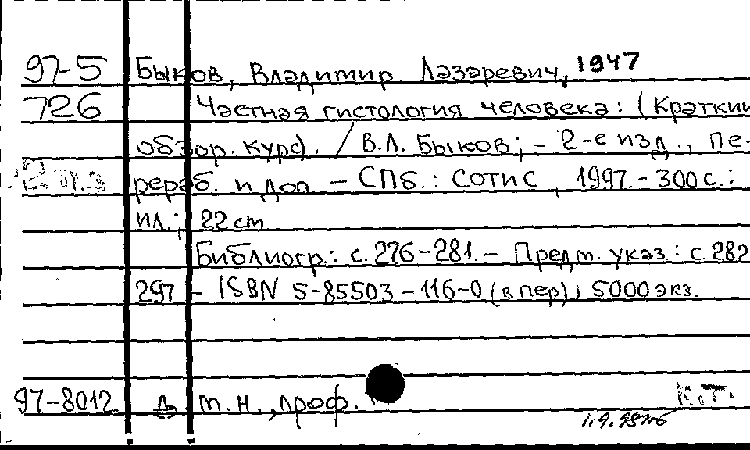 97-5 Быков, Владимир Лазаревич, 1947
726 Частная гистология человека: (Краткий
обзор. курс). / В.Л. Быков; - 2-е изд., пе-
рераб. и доп. - СПб.: СОТИС, 1997. - 300 с.:
ил.; 22 cm
Библиогр.: с. 276-281. - Предм. указ.: с. 282
297 - ISBN 5-85503-116-0 (в пер), 5000 экз.
97-8012 т.н., проф.
К.Т.